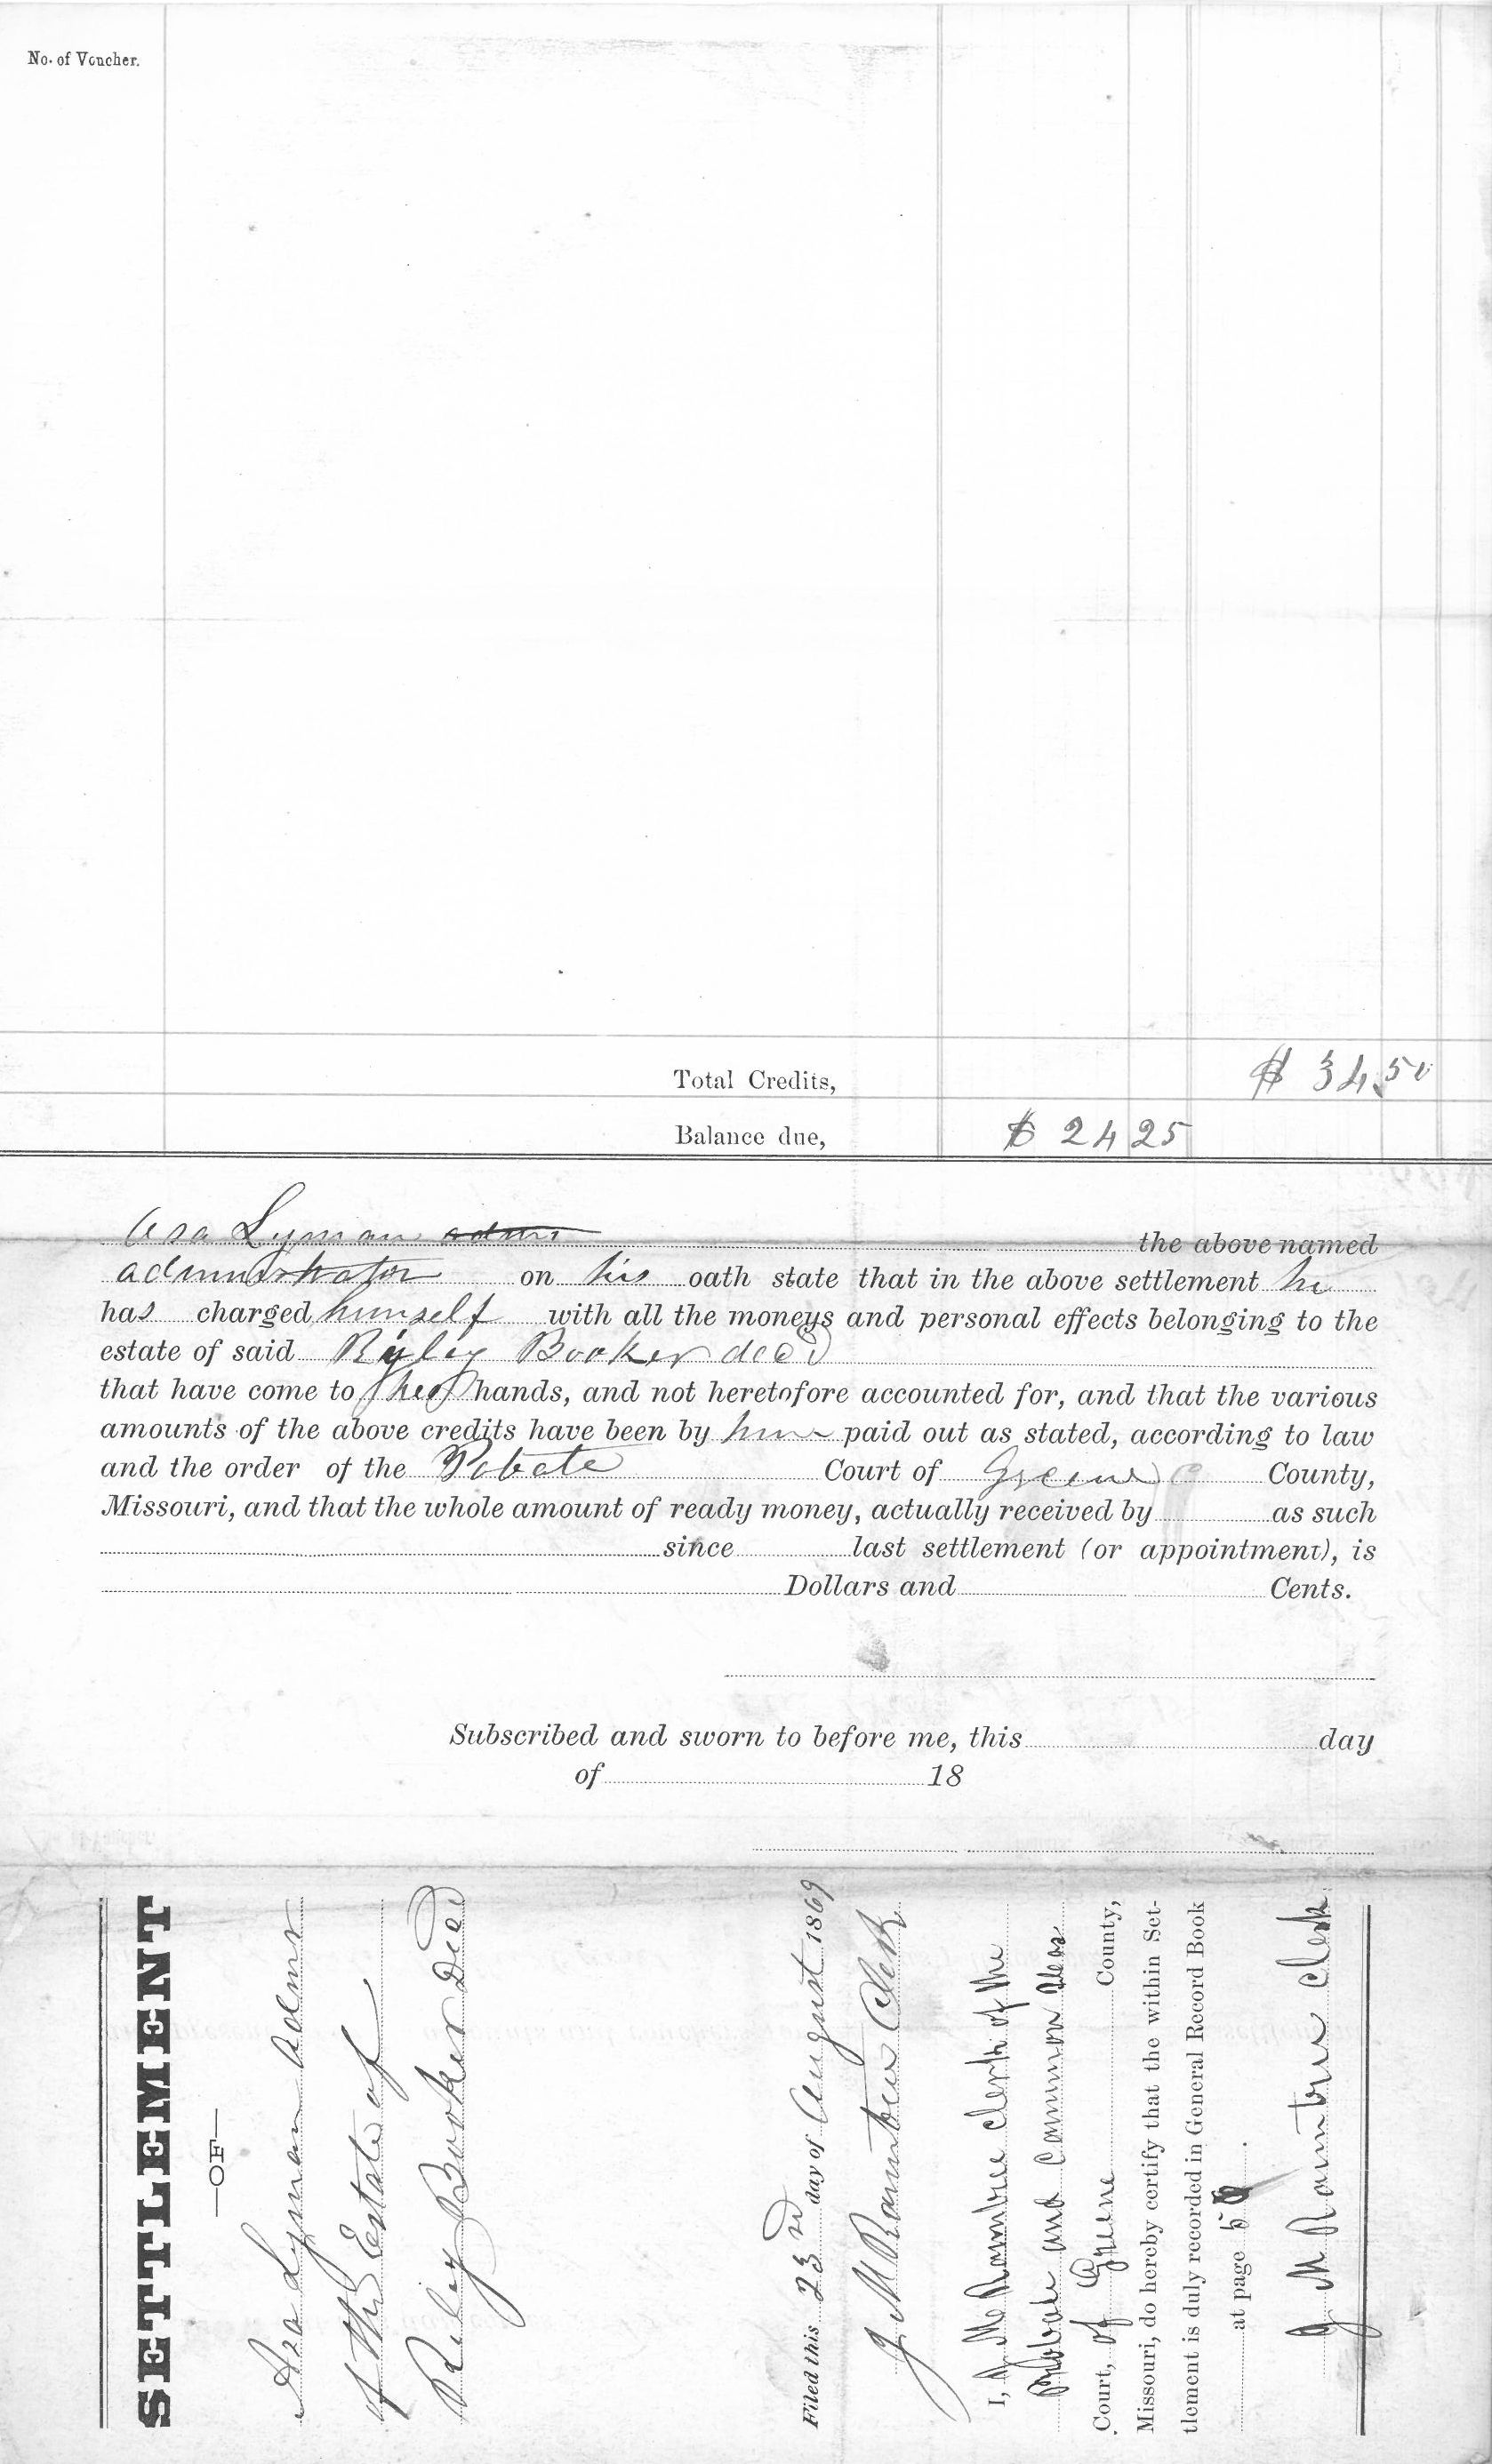 No. of Voucher.
Total Credits, $ 34.50
Balance due, $ 24 25
Asa Lyman admr the above named
administrator on his oath state that in the above settlement he
has charged himself with all the moneys and personal effects belonging to the
estate of said Riley Booker decd
that have come to his hands, and not heretofore accounted for, and that the various
amounts of the above credits have been by him paid out as stated, according to law
and the order of the Pobate Court of Greene County,
Missouri, and that the whole amount of ready money, actually received by as such
since last settlement (or appointment), is
Dollars and Cents.
Subscribed and sworn to before me, this day
of 18
SETTLEMENT
—OF—
Asa Lyman Admr
of the Estate of
Riley Booker Decd
Filed this 23rd day of August 1869
J. M Rountree Clerk
I, J M Rountree Clerk of the
Probate and Common Pleas
Court, of Greene County,
Missouri, do hereby certify that the within Set-
tlement is duly recorded in General Record Book
at page
J M Rountree Clerk